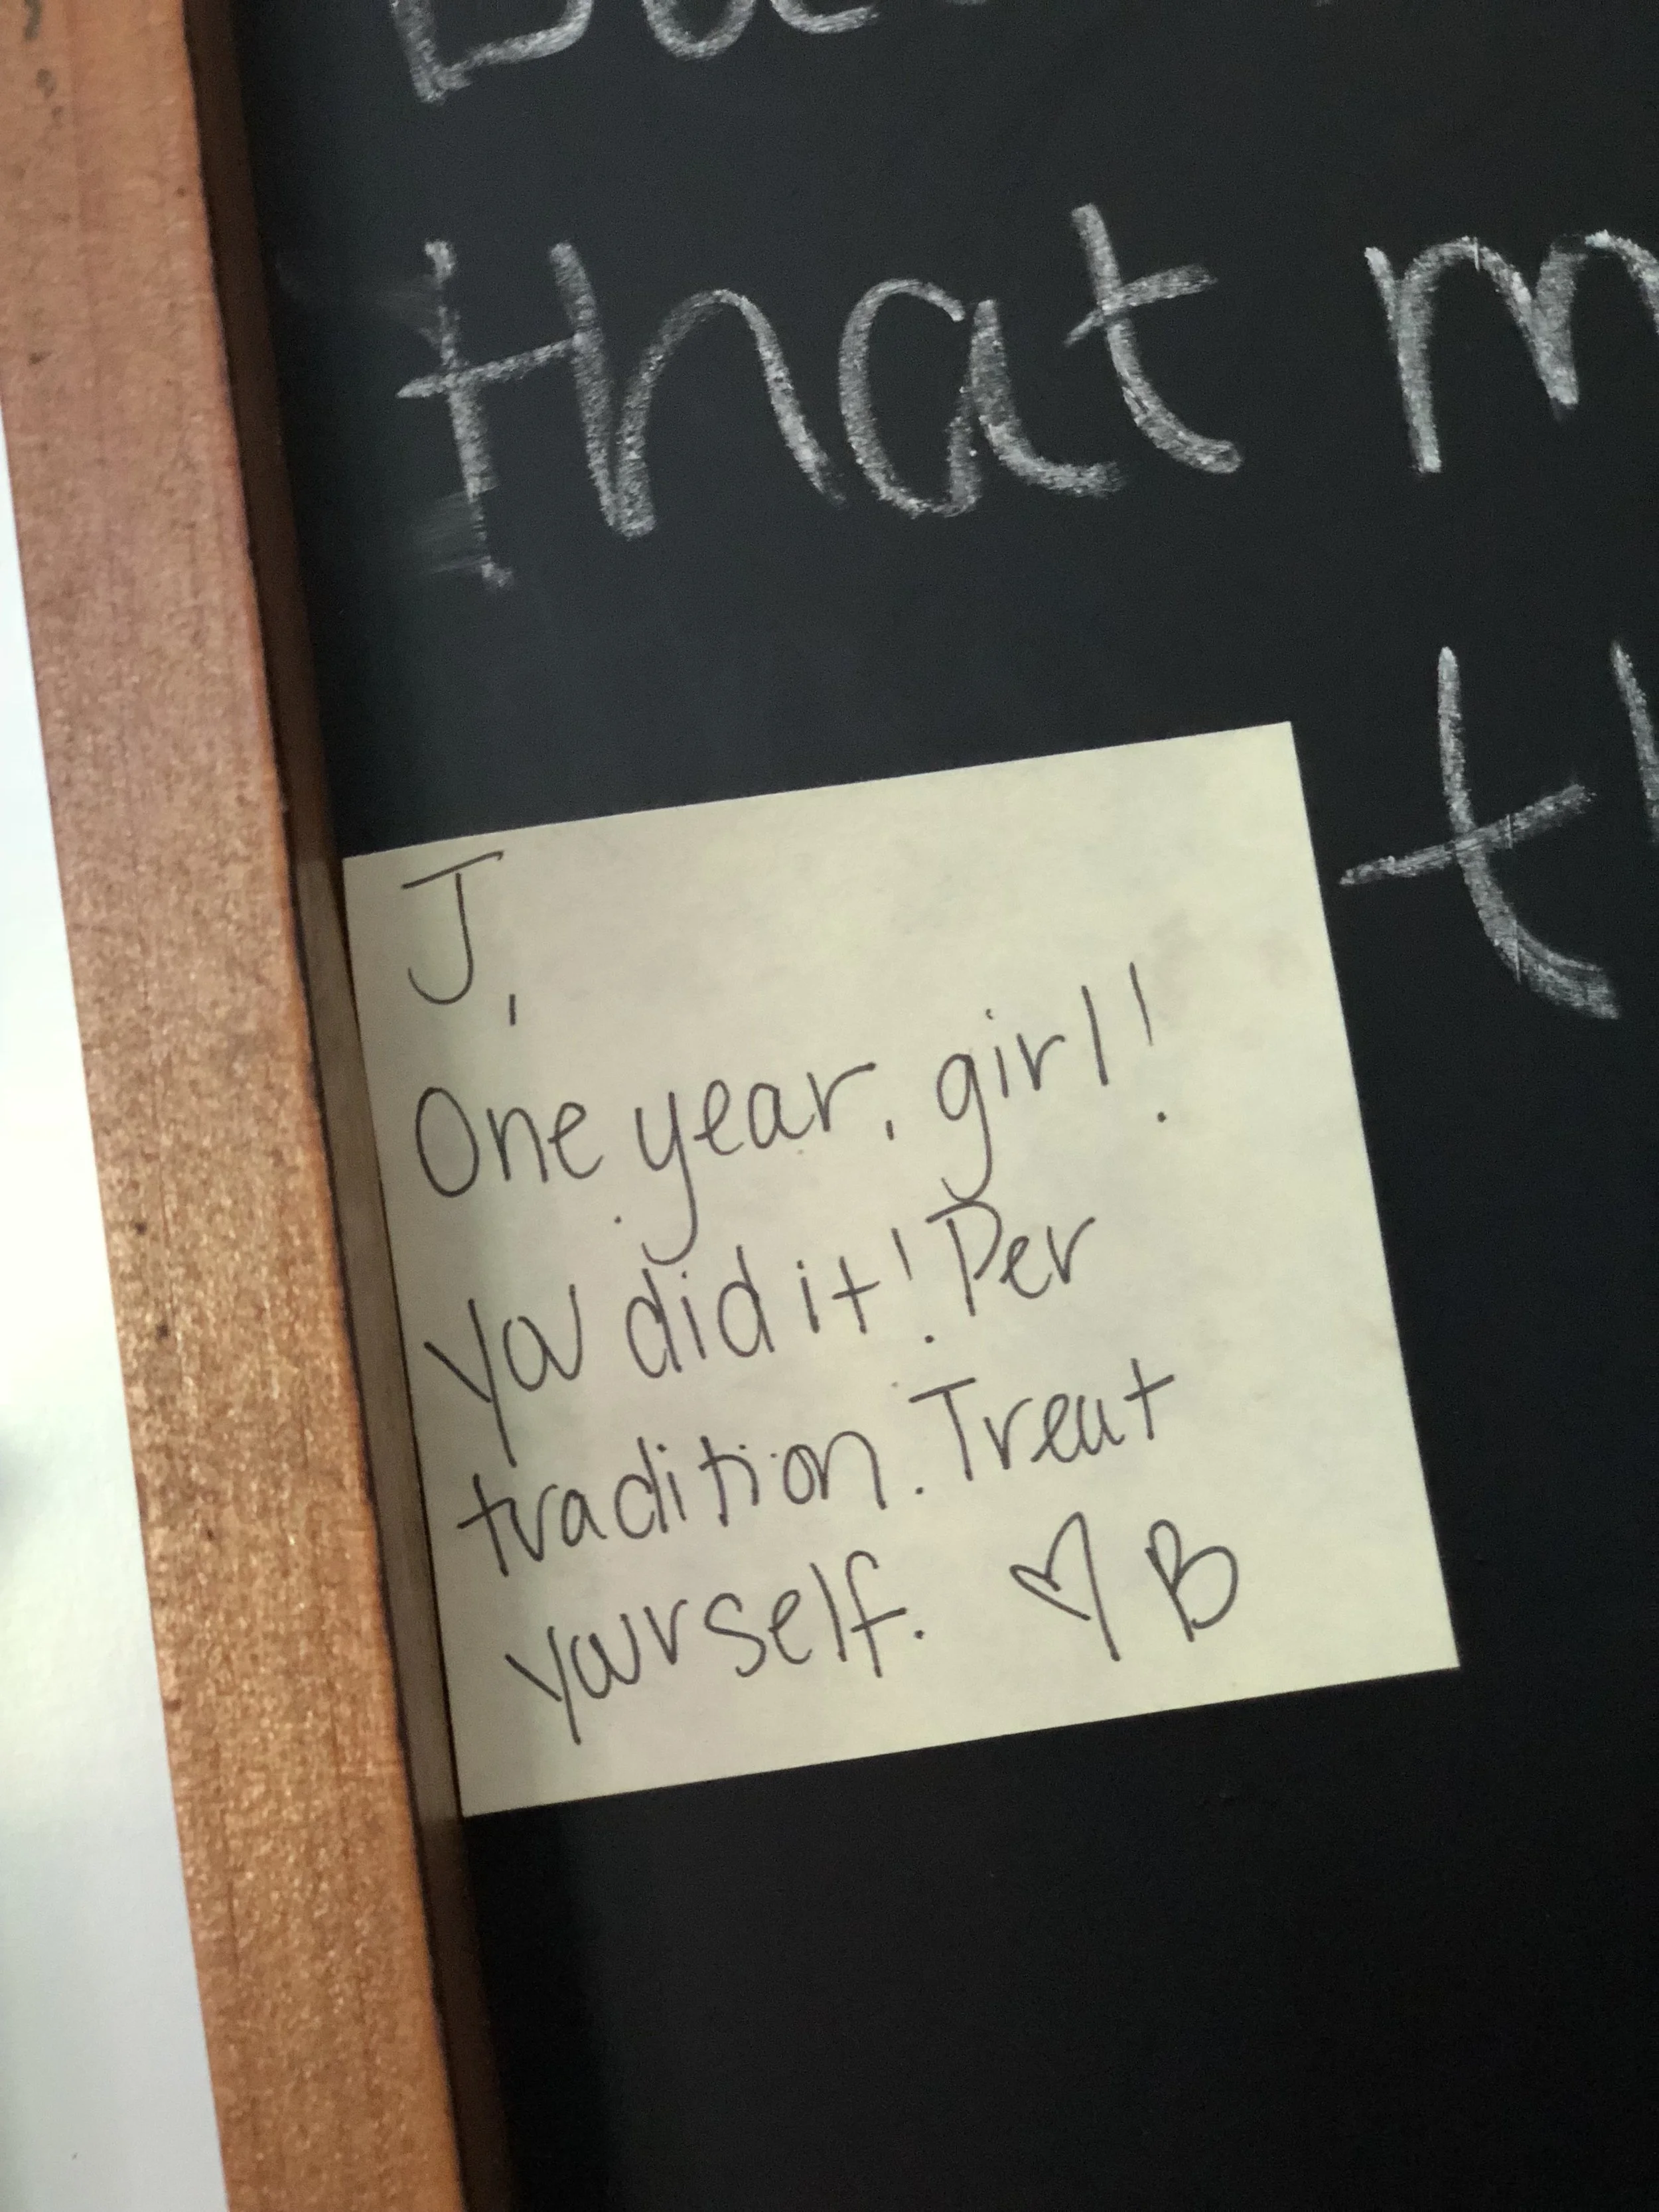 that
J,
One year, girl!
you did it! Per
tradition. Treat
yourself. ♡ B